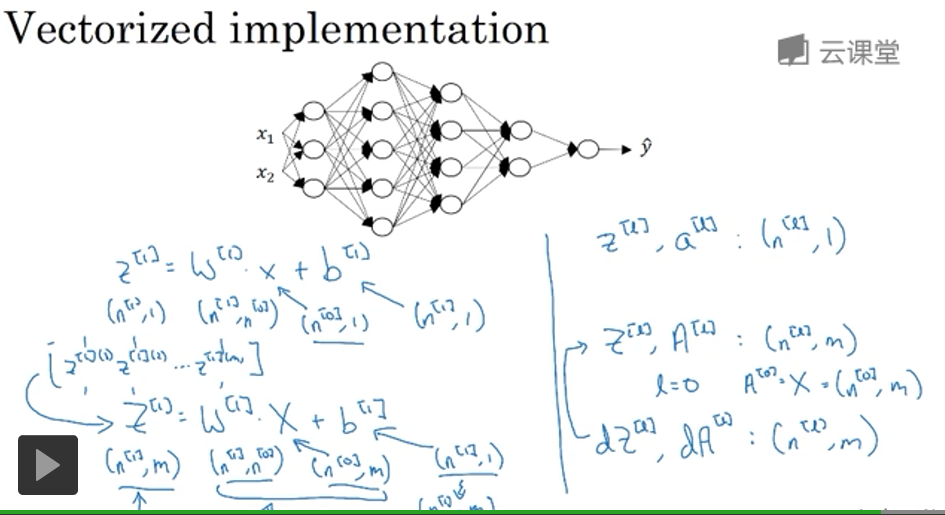 Vectorized implementation
云课堂
x₁
x₂
ŷ
z^[1] = W^[1] · x + b^[1]
(n^[1], 1) (n^[1], n^[0]) (n^[0], 1) (n^[1], 1)
[z^[1](1) z^[1](2) ... z^[1](m)]
Z^[1] = W^[1] · X + b^[1]
(n^[1], m) (n^[1], n^[0]) (n^[0], m) (n^[1], 1)
z^[l], a^[l] : (n^[l], 1)
Z^[l], A^[l] : (n^[l], m)
l=0 A^[0] = X = (n^[0], m)
dZ^[l], dA^[l] : (n^[l], m)